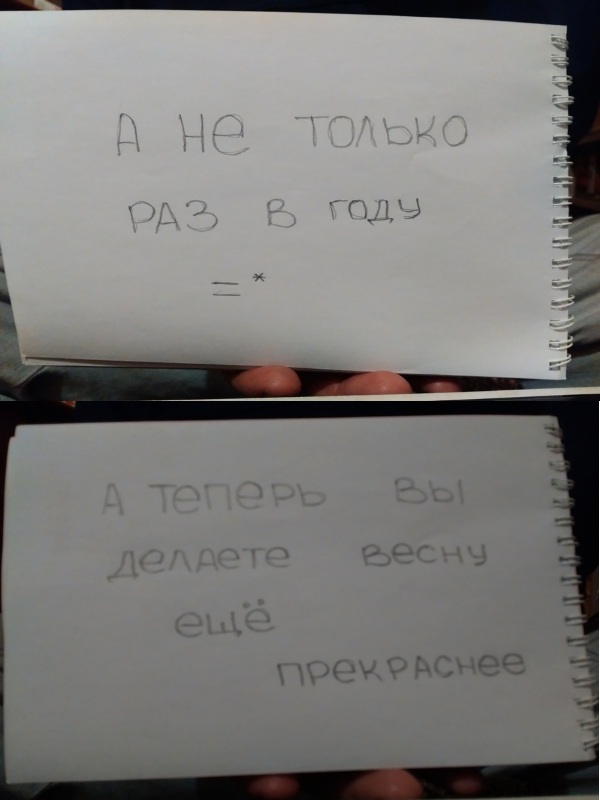 А не только
раз в году
=*
А теперь вы
делаете весну
ещё
прекраснее